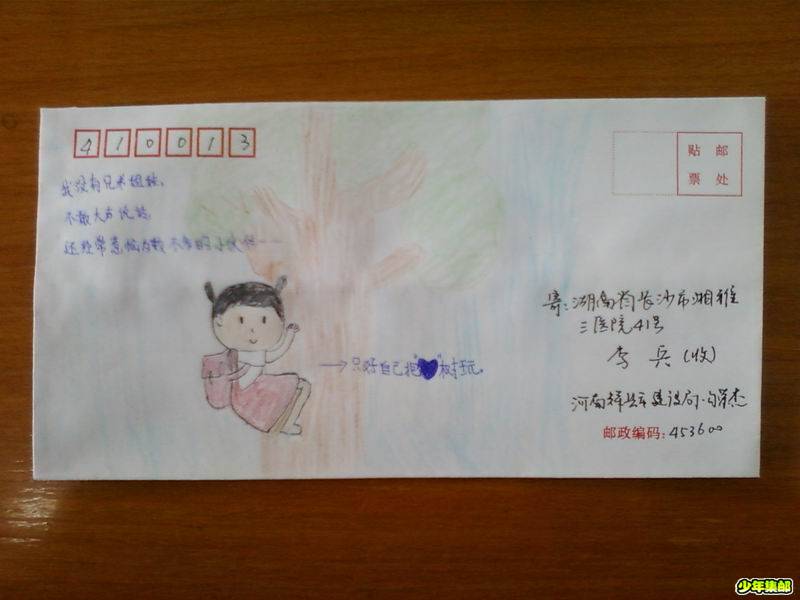 410013
我没有兄弟姐妹,
不敢大声说话,
还经常意
贴 邮
票 处
寄:湖南省长沙市湘雅
三医院41号
李 兵(收)
→只好自己抱树玩。
河南辉县市建设局
邮政编码:453600
少年集邮